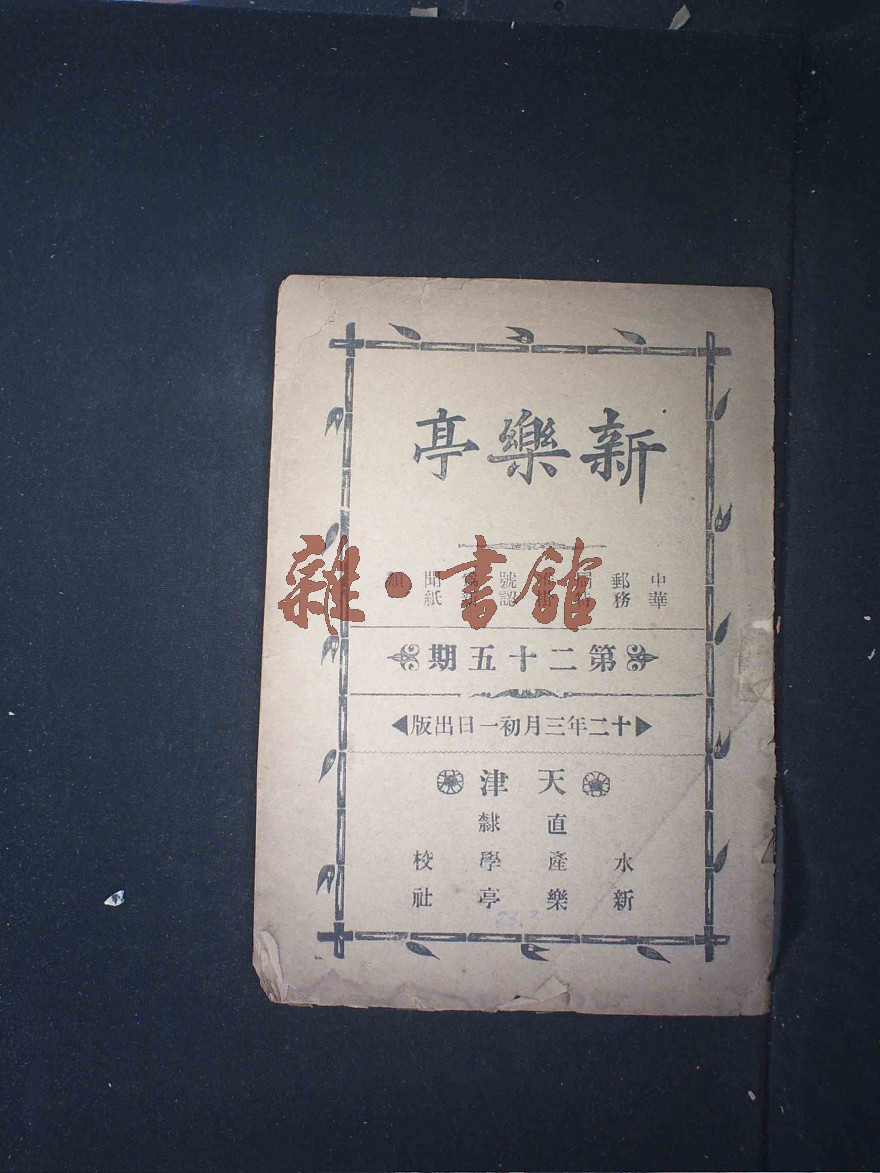 新樂亭
中華郵務 號認 聞紙類
雜·書館
第二十五期
十二年三月初一日出版
天津
直隸
水產學校
新樂亭社